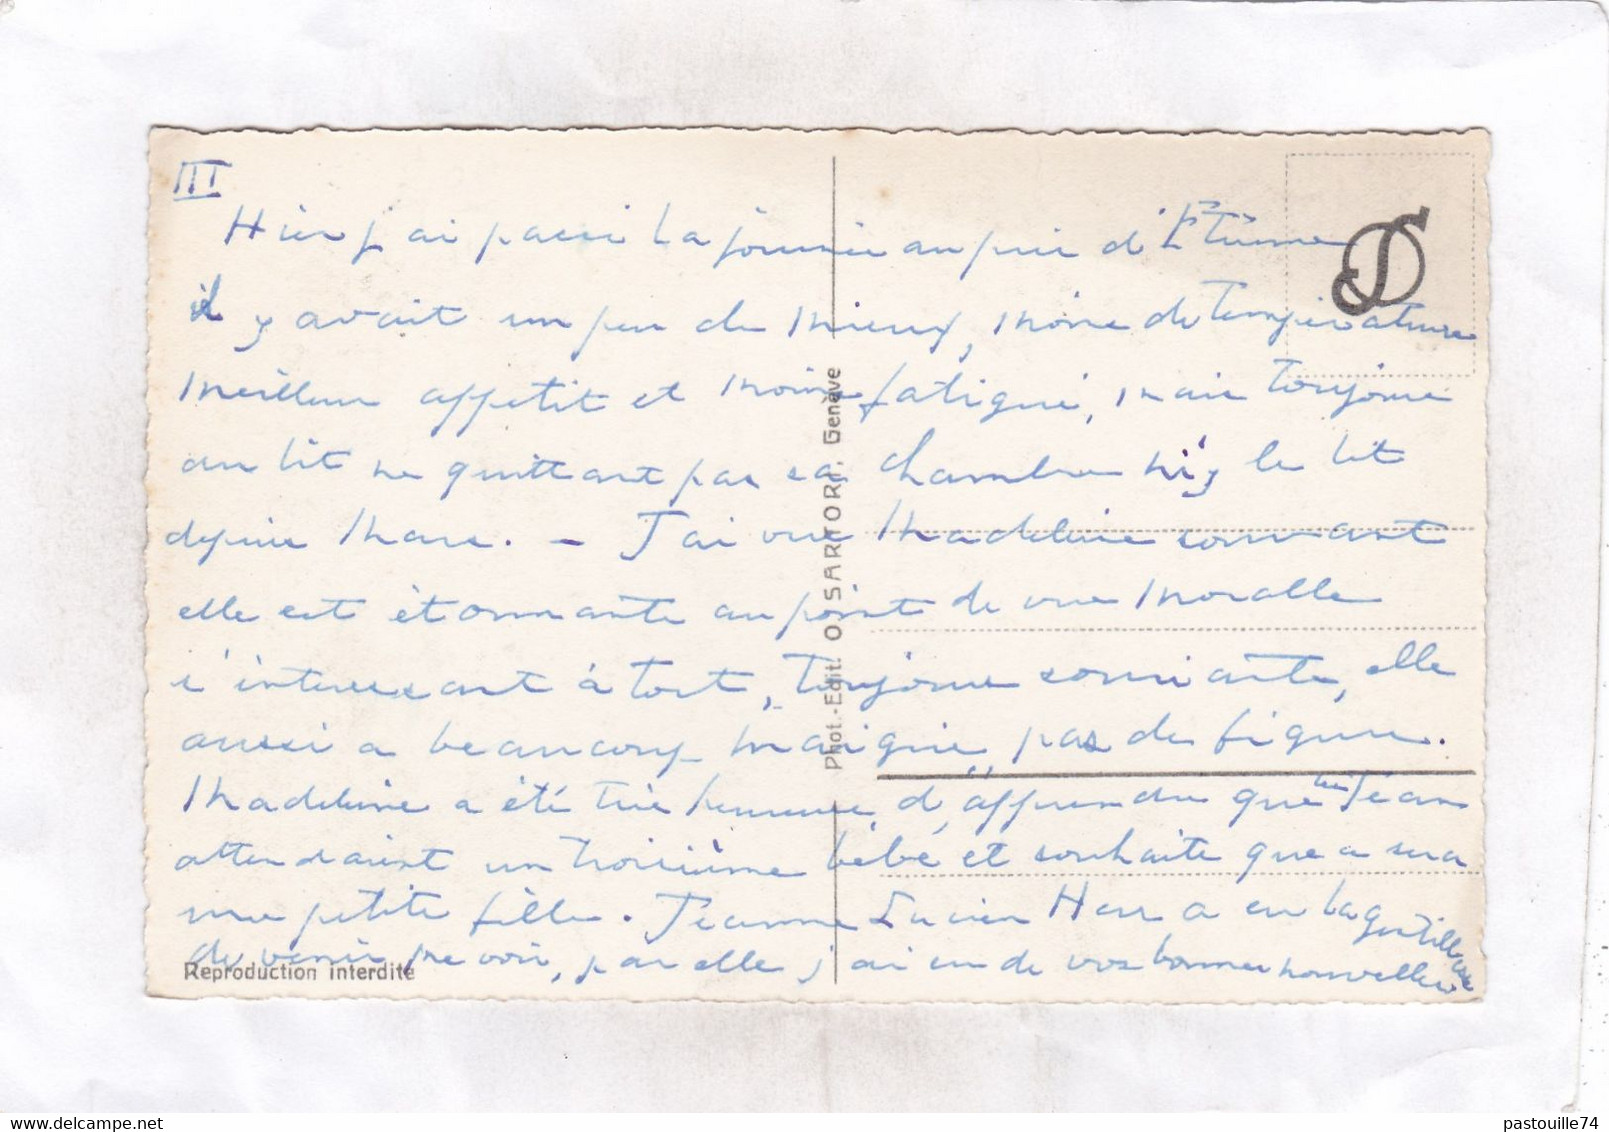 III
Hier j'ai passé la journée auprès d'Etienne
il y avait un peu de mieux, moins de température
meilleur appétit et moins fatigué, mais toujours
au lit ne quittant pas sa chambre ni le lit
depuis Mars. - J'ai vu Madeleine souvent
elle est étonnante au point de vue moralle
s'intéressant à tout, toujours souriante, elle
aussi a beaucoup maigrie, pas de figure.
Madeleine a été très heureuse d'apprendre que les Jean
attendaient un troisième bébé et souhaite que ce sera
une petite fille. Jeanne Lucien Herr a eu la gentillesse
de venir me voir, par elle j'ai eu de vos bonnes nouvelles
Reproduction interdite
Phot.-Edit. O. SARTORI, Genève
OS
pastouille74